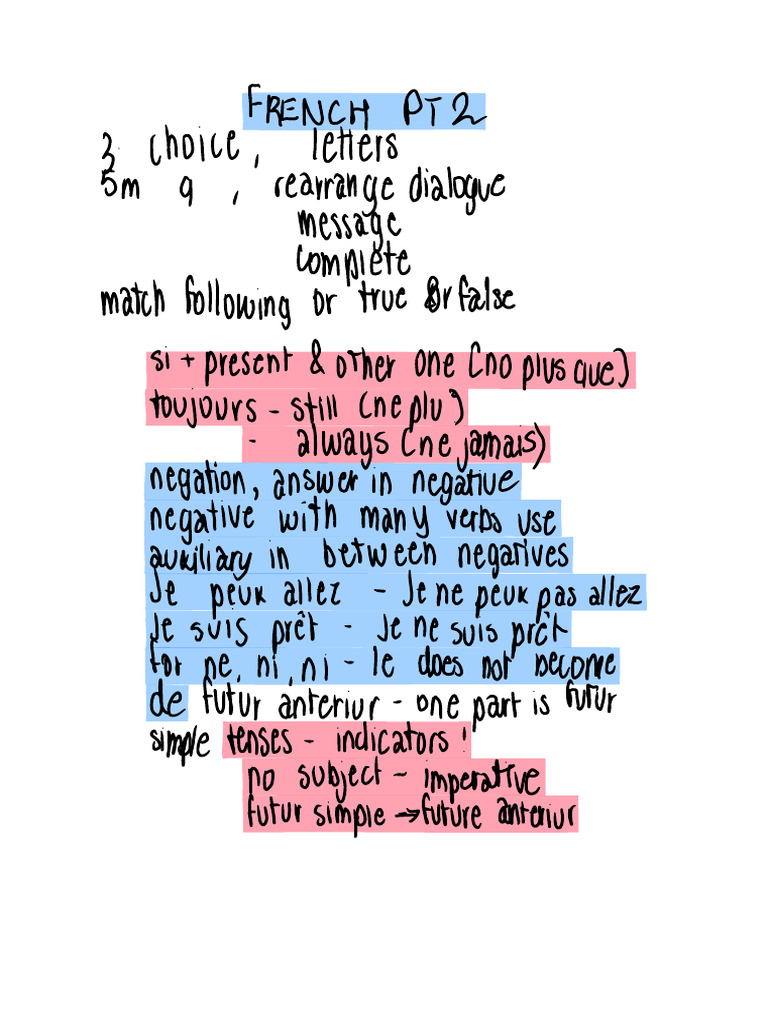 FRENCH PT2
3 choice, letters
5m q, rearrange dialogue
message
complete
match following or true or false
si + present & other one (no plus que)
toujours - still (ne plu)
- always (ne jamais)
negation, answer in negative
negative with many verbs use
auxiliary in between negatives
Je peux allez - Je ne peux pas allez
Je suis prêt - Je ne suis prêt
for ne, ni, ni - le does not become
de futur anteriur - one part is futur
simple tenses - indicators!
no subject - imperative
futur simple → future anteriur